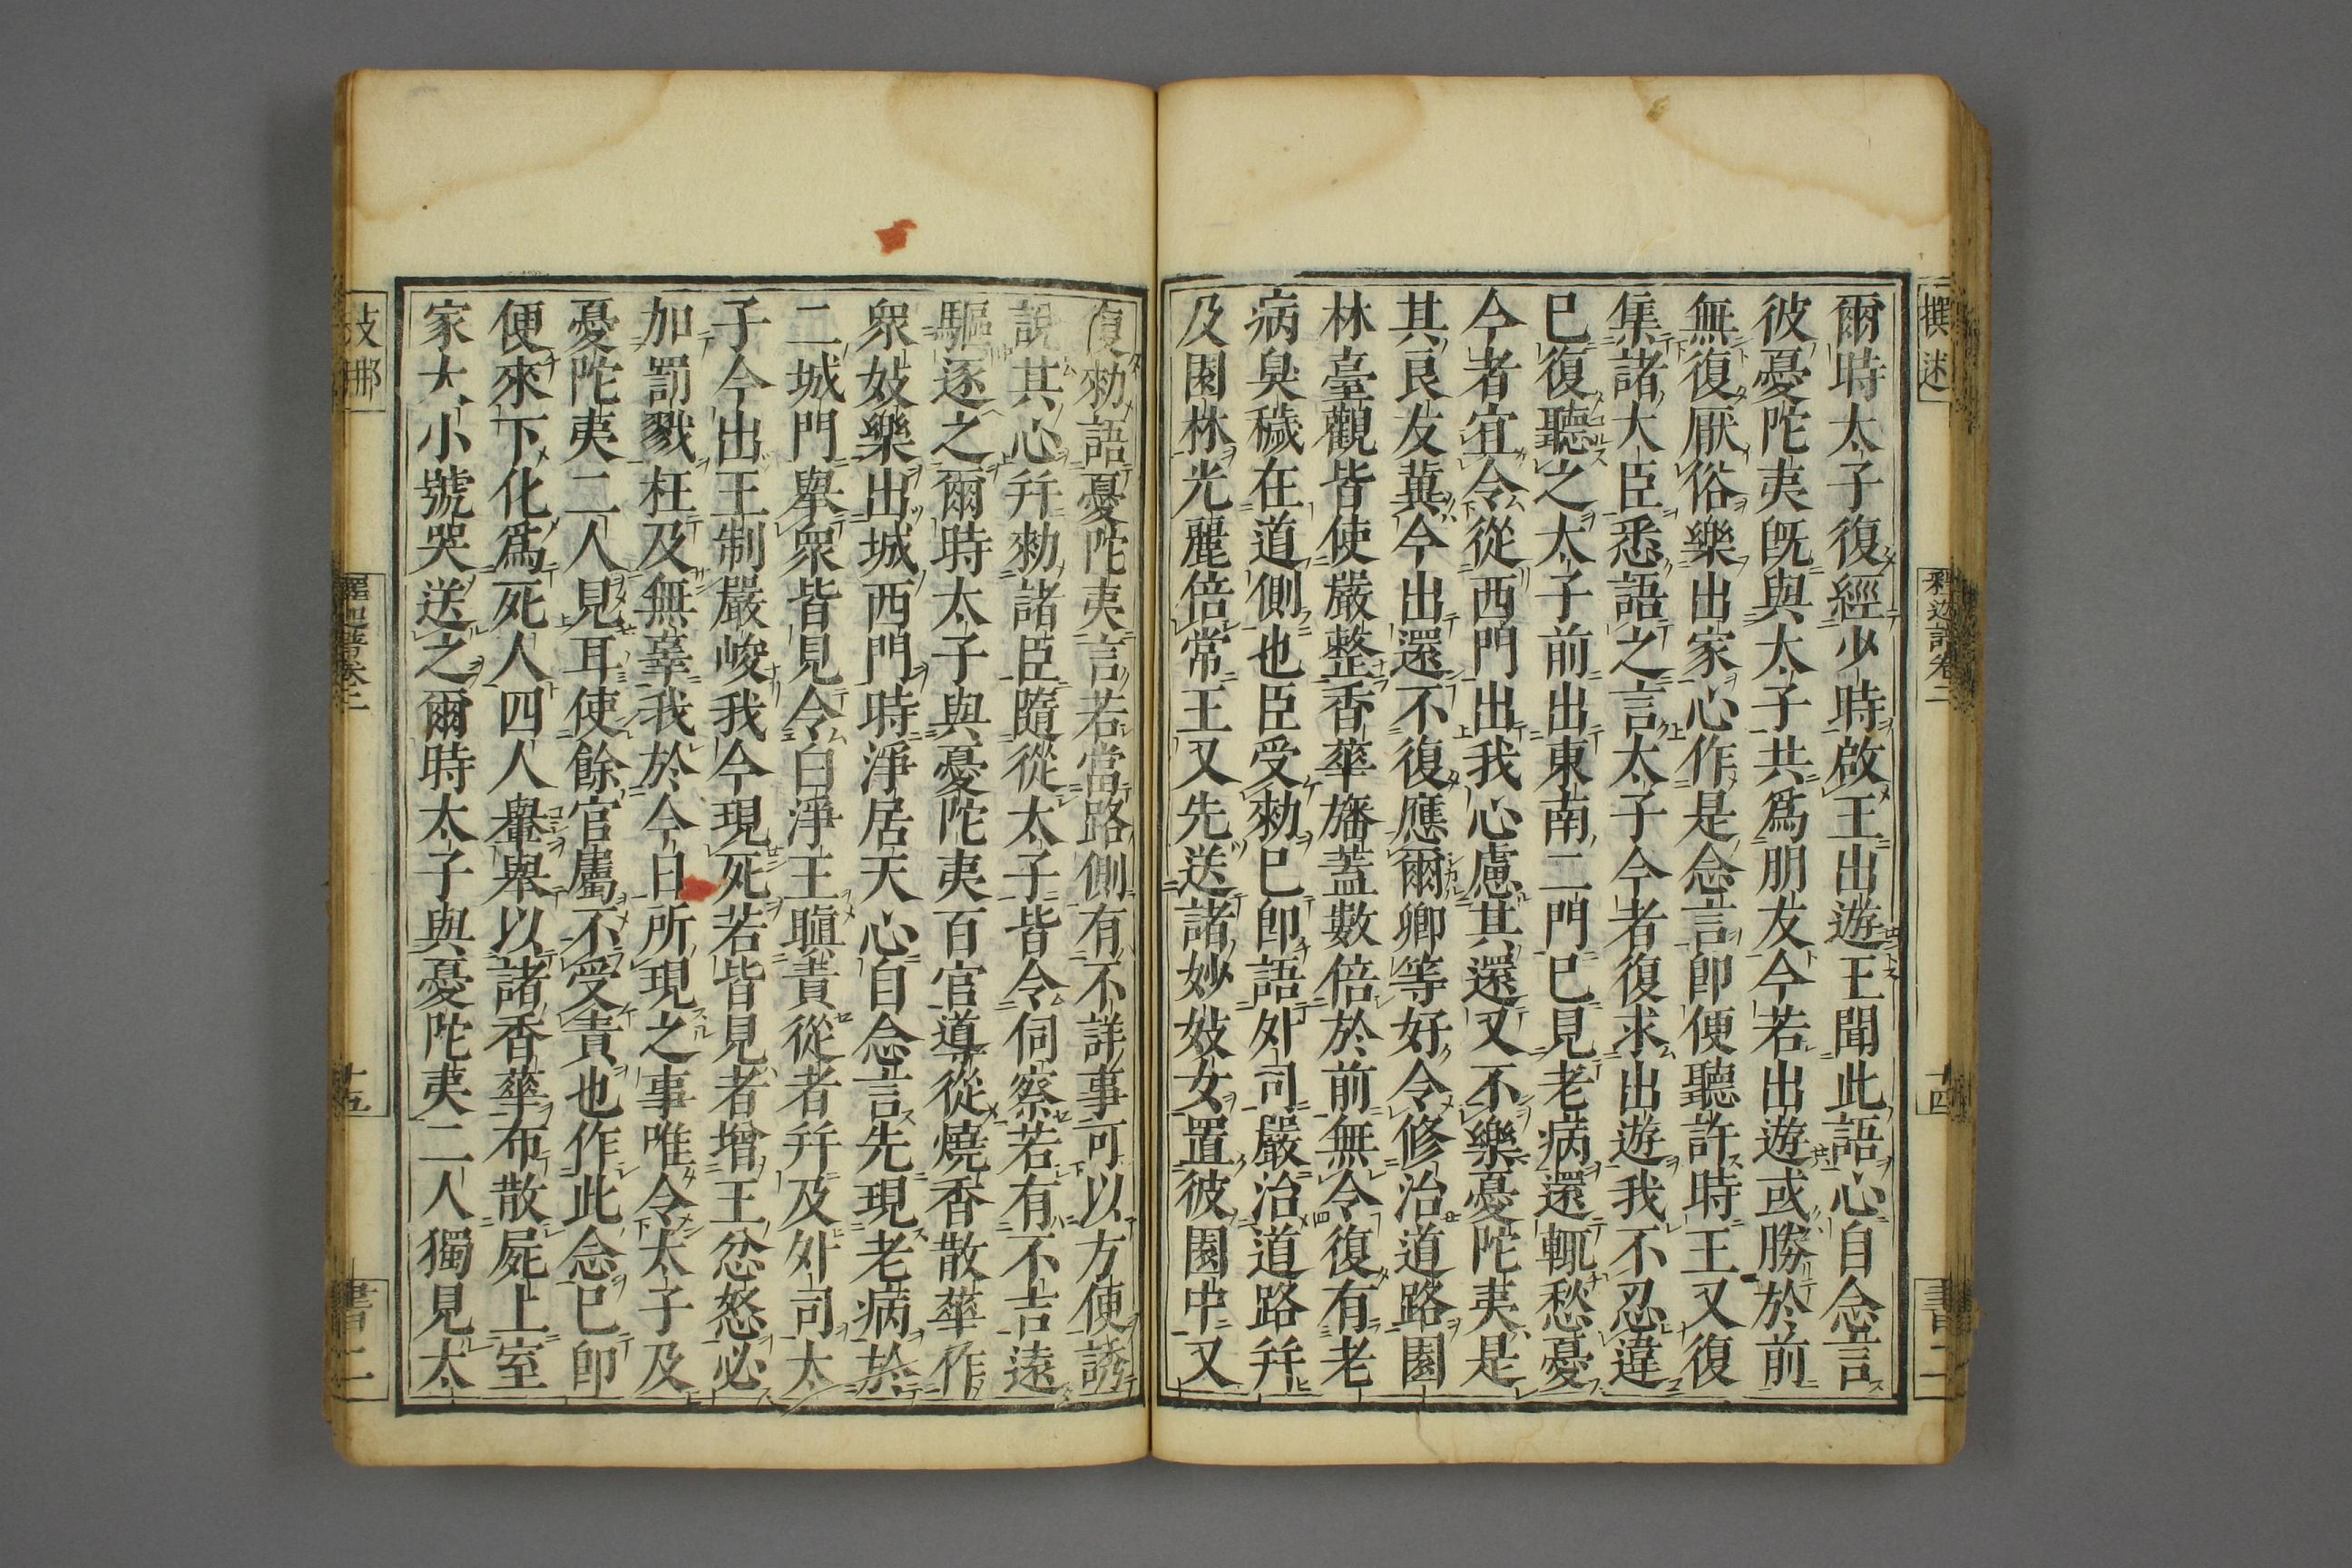 撰述
釋迦譜卷二
十四
書二
爾時太子復經少時啟王出遊王聞此語心自念言
彼憂陀夷旣與太子共爲朋友今若出遊或勝於前
無復厭俗樂出家心作是念言卽便聽許時王又復
集諸大臣悉語之言太子今者復求出遊我不忍違
已復聽之太子前出東南二門已見老病還輒愁憂
今者宜令從西門出我心慮其還又不樂憂陀夷是
其良友冀今出還不復應爾卿等好令修治道路園
林臺觀皆使嚴整香華旛蓋數倍於前無令復有老
病臭穢在道側也臣受勑已卽語外司嚴治道路幷
及園林光麗倍常王又先送諸妙妓女置彼園中又
復勑語憂陀夷言若當路側有不詳事可以方便誘
說其心幷勑諸臣隨從太子皆令伺察若有不吉遠
驅逐之爾時太子與憂陀夷百官導從燒香散華作
衆妓樂出城西門時淨居天心自念言先現老病於
二城門舉衆皆見令白淨王瞋責從者幷及外司太
子今出王制嚴峻我今現死若皆見者增王忿怒必
加罰戮枉及無辜我於今日所現之事唯令太子及
憂陀夷二人見耳使餘官屬不受責也作此念已卽
便來下化爲死人四人轝舉以諸香華布散屍上室
家大小號哭送之爾時太子與憂陀夷二人獨見太
支那
釋迦譜卷二
十五
書二